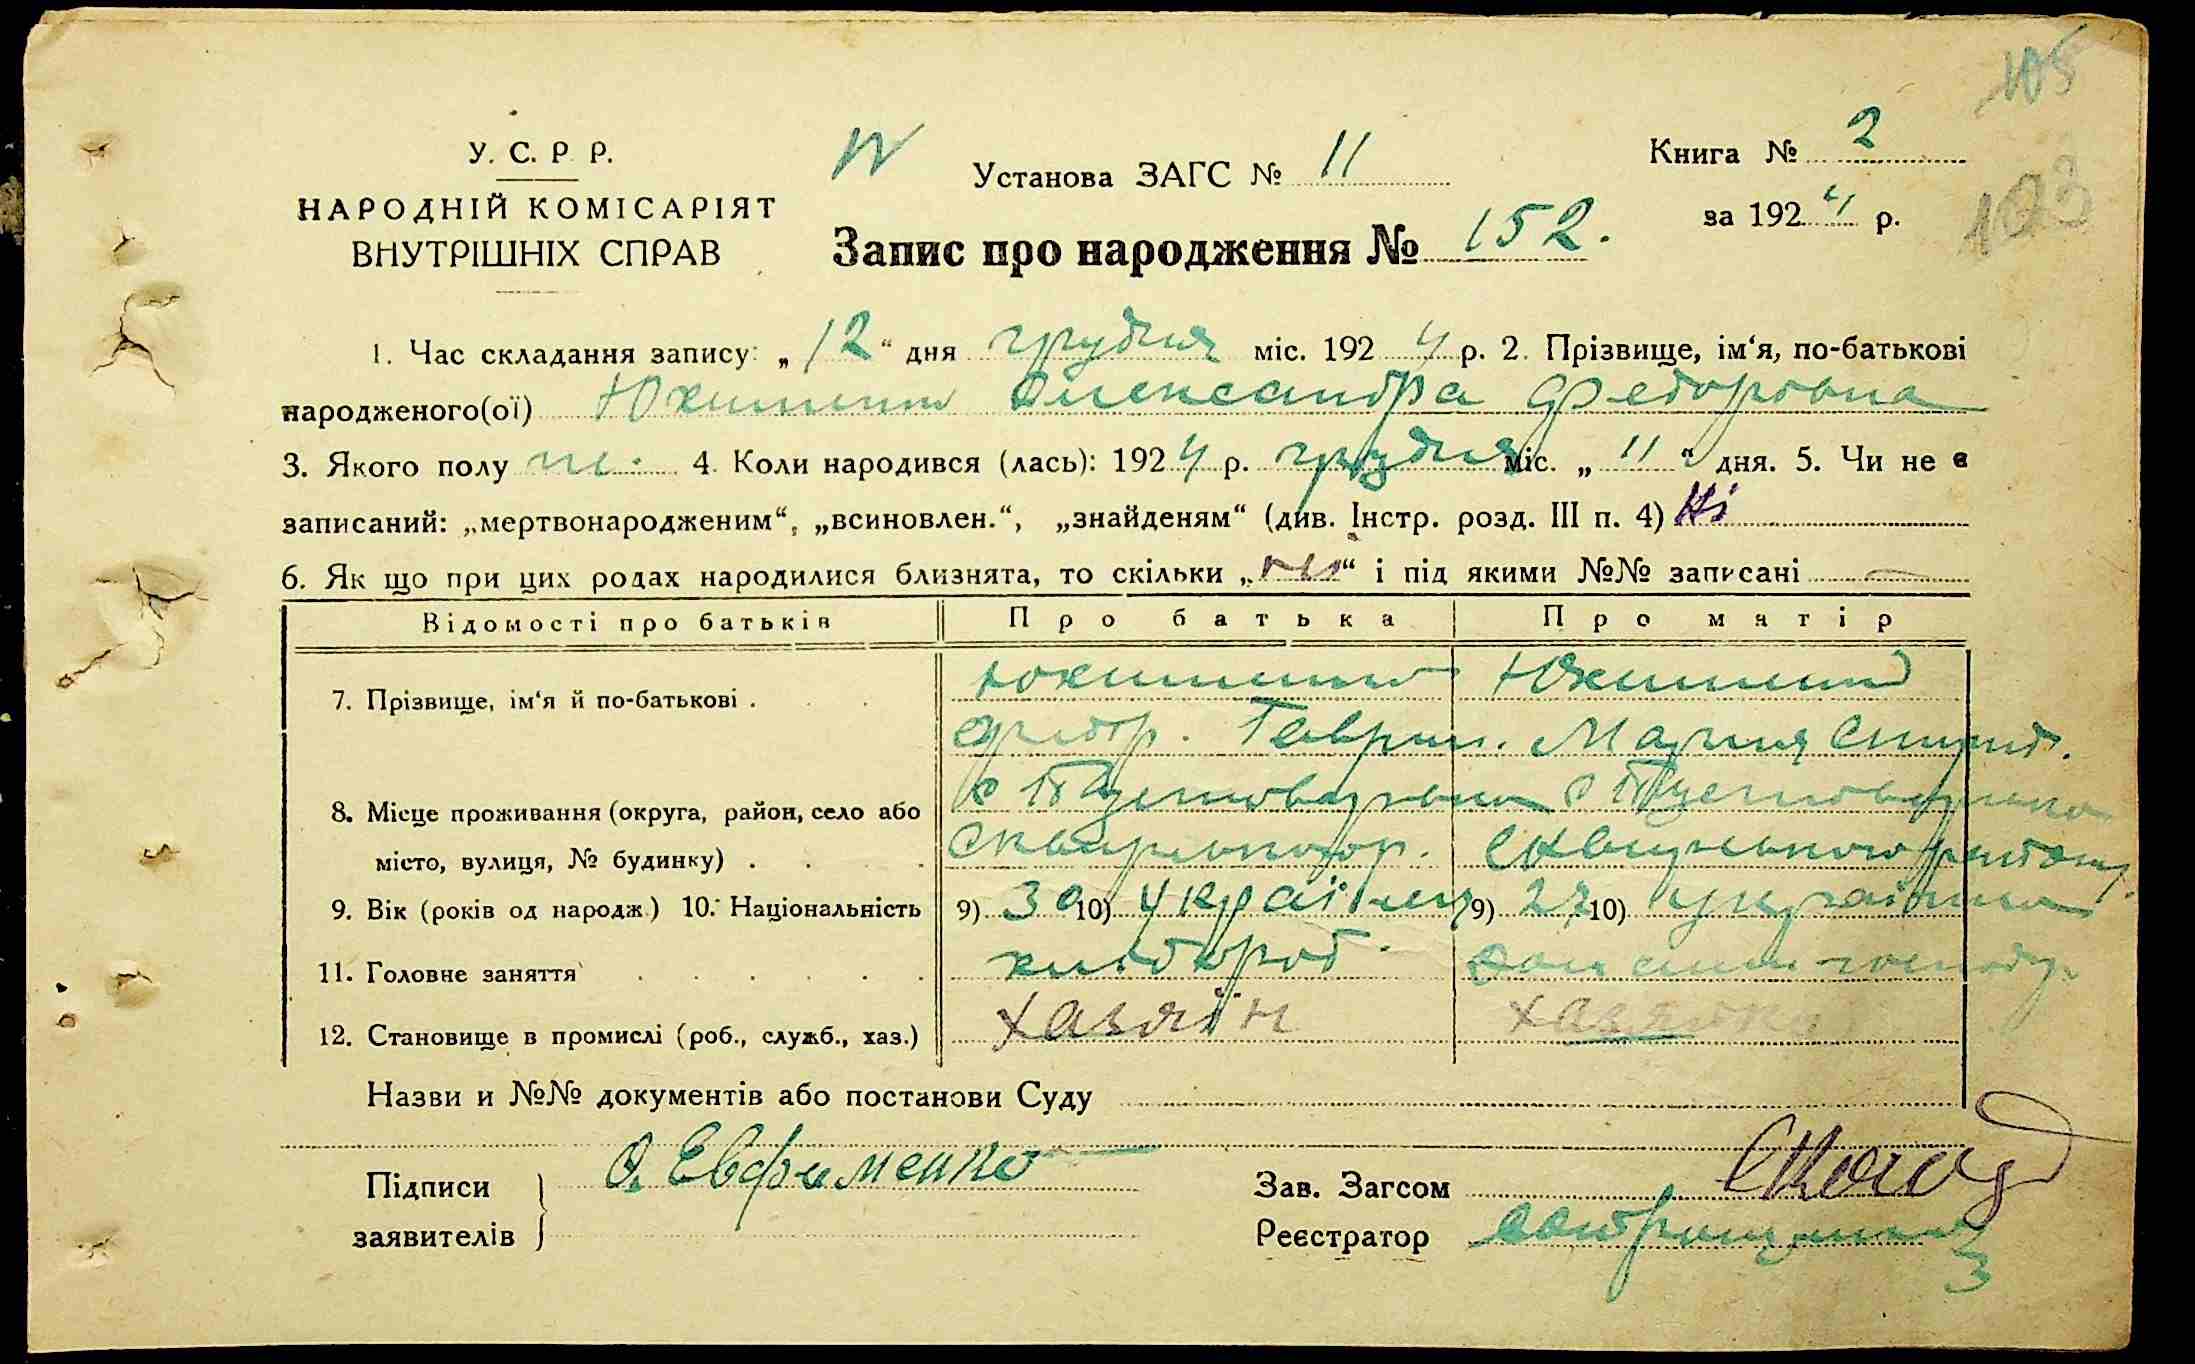 105
У. С. Р. Р.
НАРОДНІЙ КОМІСАРІЯТ
ВНУТРІШНІХ СПРАВ
Установа ЗАГС № 11
Книга № 2
за 1924 р.
103
Запис про народження № 152.
1. Час складання запису: „12“ дня грудня міс. 1924 р. 2. Прізвище, ім‘я, по-батькові
народженого(ої) Юхименко Олександра Федоровна
3. Якого полу ж. 4. Коли народився (лась): 1924 р. грудня міс. „11“ дня. 5. Чи не є
записаний: „мертвонародженим“, „всиновлен.“, „знайденям“ (див. Інстр. розд. III п. 4) Ні
6. Як що при цих родах народилися близнята, то скільки „ “ і під якими №№ записані —
Відомості про батьків Про батька Про матір
7. Прізвище, ім‘я й по-батькові . Юхименко Юхименко
Федор. Гаврил. Мария
8. Місце проживання (округа, район, село або
місто, вулиця, № будинку) . Сквирського р. Сквирського району
9. Вік (років од народж.) 10. Національність 9) 30 10) Українец 9) 27 10) українка
11. Головне заняття хлібороб домашн. господ.
12. Становище в промислі (роб., служб., хаз.) Хазяїн Хазяйка
Назви и №№ документів або постанови Суду
Підписи
заявителів
О. Евфименко
Зав. Загсом
Реєстратор